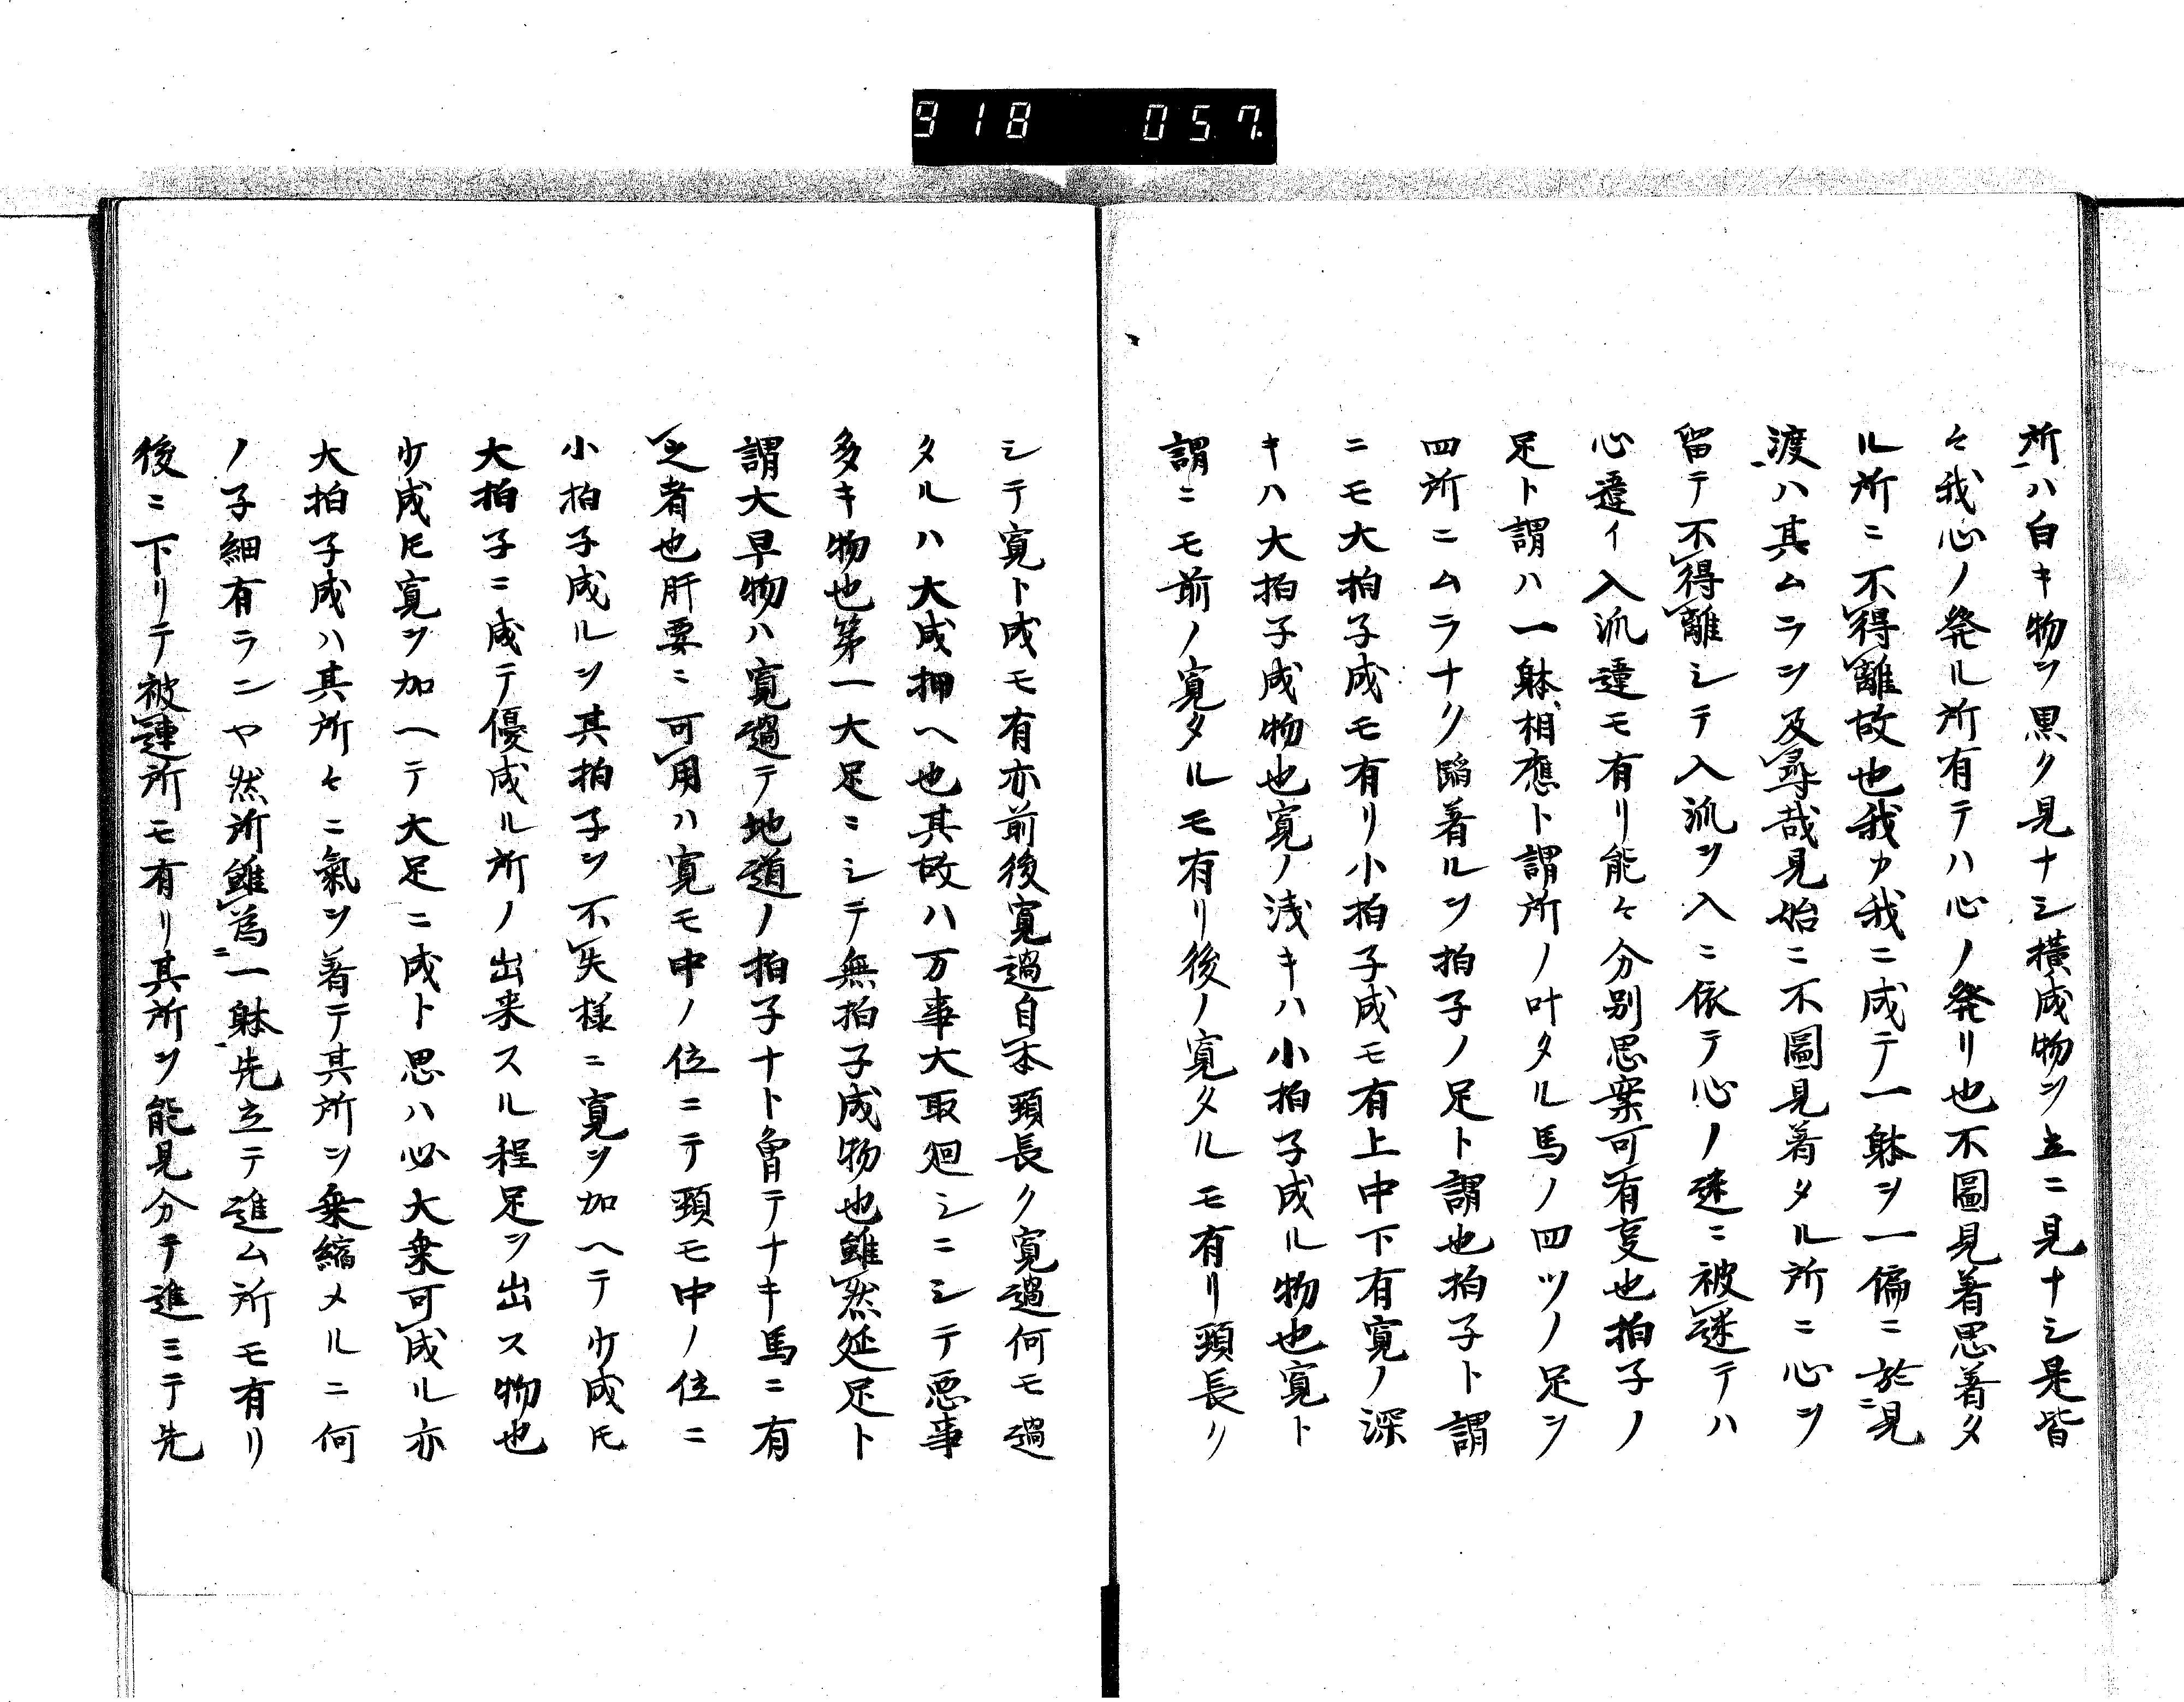 918 057
所ハ白キ物ヲ黒ク見ナシ横成物ヲ立ニ見ナシ是皆
々我心ノ発ル所有テハ心ノ発リ也不圖見着思着タ
ル所ニ不得離故也我カ我ニ成テ一躰ヲ一偏ニ於ニ見
渡ハ其ムラヲ及尋哉見始ニ不圖見着タル所ニ心ヲ
留テ不得離シテ入派ヲ入ニ依テ心ノ迷ニ被迷テハ
心違イ入派違モ有リ能々分別思案可有亥也拍子ノ
足ト謂ハ一躰相應ト謂所ノ叶タル馬ノ四ツノ足ヲ
四所ニムラナク踏着ルヲ拍子ノ足ト謂也拍子ト謂
ニモ大拍子成モ有リ小拍子成モ有上中下有寛ノ深
キハ大拍子成物也寛ノ浅キハ小拍子成ル物也寛ト
謂ニモ前ノ寛タルモ有リ後ノ寛タルモ有リ頸長ク
シテ寛ト成モ有亦前後寛過自本頸長ク寛過何モ過
タルハ大成押ヘ也其故ハ万事大取廻シニシテ悪事
多キ物也第一大足ニシテ無拍子成物也雖然延足ト
謂大早物ハ寛過テ地道ノ拍子ナト曽テナキ馬ニ有
之者也肝要ニ可用ハ寛モ中ノ位ニテ頸モ中ノ位ニ
小拍子成ルヲ其拍子ヲ不失様ニ寛ヲ加ヘテ少成圧
大拍子ニ成テ優成ル所ノ出来スル程足ヲ出ス物也
少成圧寛ヲ加ヘテ大足ニ成ト思ハ必大乗可成ル亦
大拍子成ハ其所々ニ氣ヲ着テ其所ヲ乗縮メルニ何
ノ子細有ランヤ然所雖為ニ一躰先立テ進ム所モ有リ
後ニ下リテ被連所モ有リ其所ヲ能見分テ進ミテ先